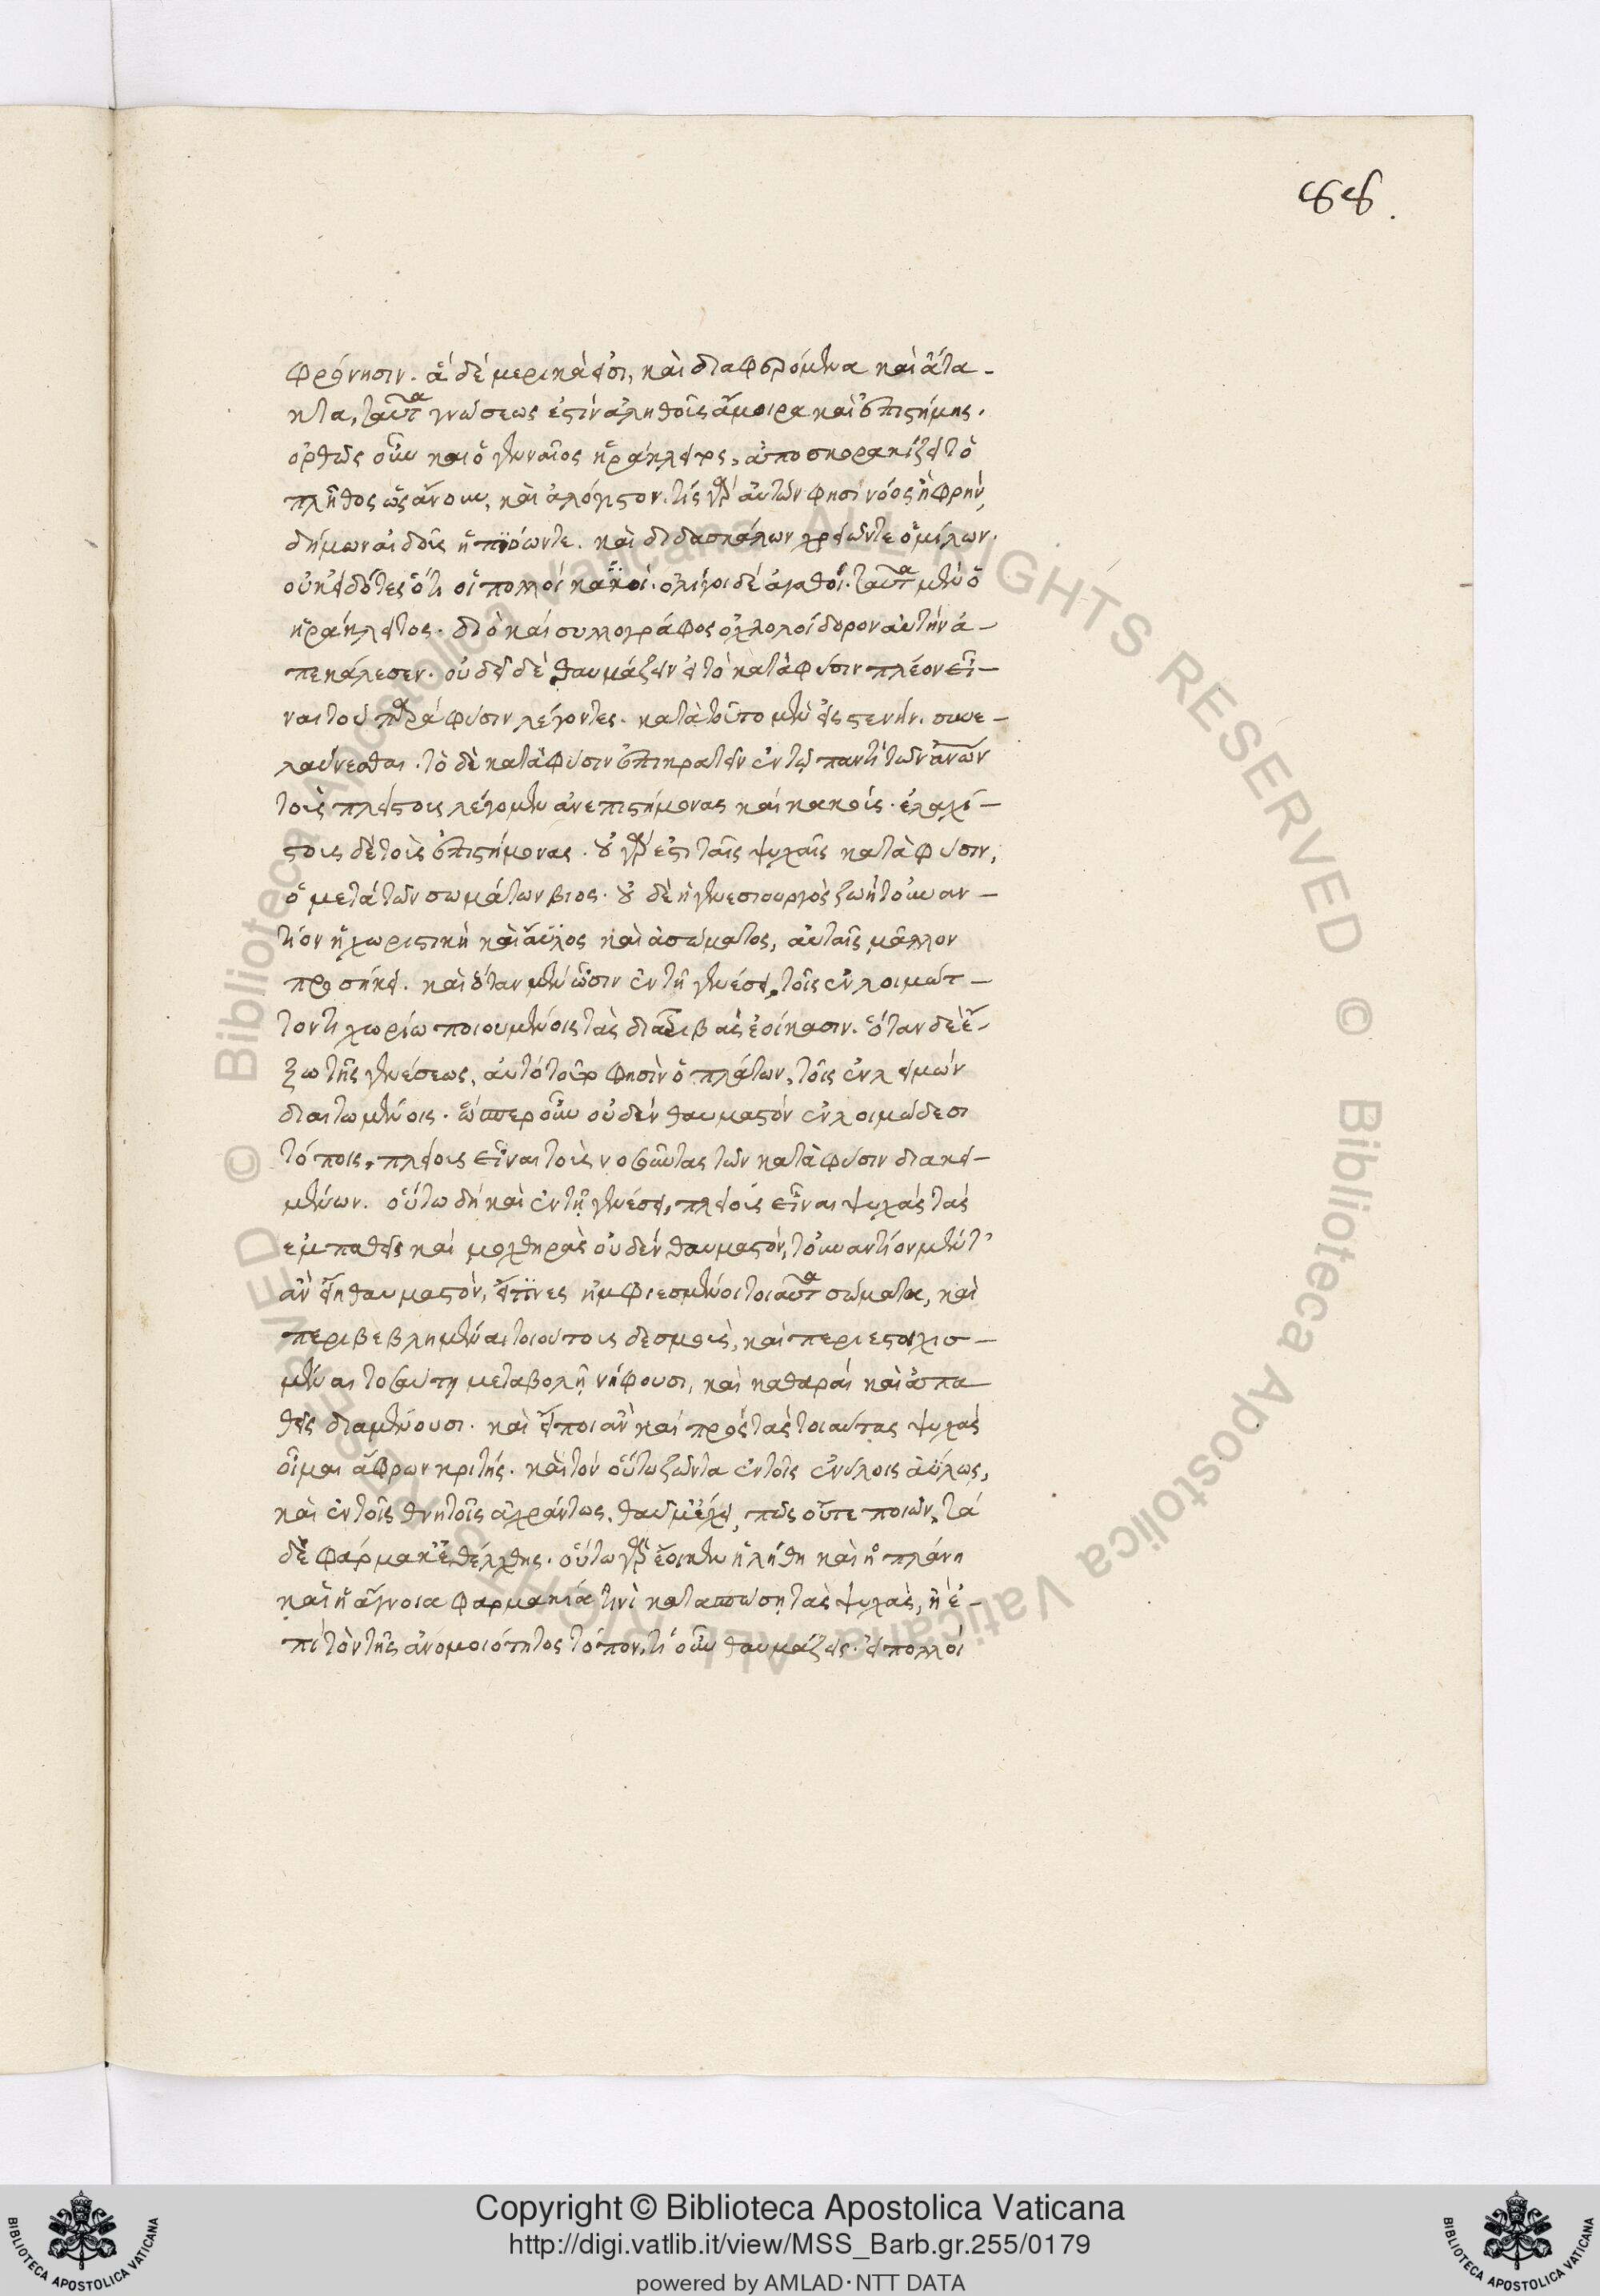 88.
φρόνησιν. ἃ δὲ μερικά εἰσι, καὶ διαφερόμενα καὶ ἄτα-
κτα, ταῦτα γνώσεως ἐστὶν ἀληθοῦς ἄμοιρα καὶ ἐπιστήμης.
ὀρθῶς οὖν καὶ ὁ γενναῖος ἡράκλειτος, ἀποσκορακίζει τὸ
πλῆθος ὡς ἄνουν, καὶ ἀλόγιστον. τίς γὰρ αὐτῶν φησὶ νόος ἢ φρήν,
δήμων αἰδοῦς ἠπιόωντε. καὶ διδασκάλων χρειῶντε ὁμίλων.
οὐκ εἰδότες ὅτι οἱ πολλοὶ κακοί. ὀλίγοι δὲ ἀγαθοί. ταῦτα μὲν ὁ
ἡράκλειτος. διὸ καὶ συλλογράφος ὀχλολοίδορον αὐτὴν ἀ-
πεκάλεσεν. οὐδεὶ δὲ θαυμάζειν εἰ τὸ κατὰ φύσιν πλέον εἶ-
ναι τοῦ παρὰ φύσιν λέγοντες. κατὰ τοῦτο μὲν εἰς στενήν. συνε-
λαύνεσθαι. τὸ δὲ κατὰ φύσιν ἐπικρατεῖν ἐν τῷ παντὶ τῶν ἀνῶν
τοὺς πλείστους λέγομεν ἀνεπιστήμονας καὶ κακούς. ἐλαχί-
στους δὲ τοὺς ἐπιστήμονας. οὐ γάρ ἐστι ταῖς ψυχαῖς κατὰ φύσιν,
ὁ μετὰ τῶν σωμάτων βιος. οὐ δὲ ἡ γενεσιουργὸς ζωὴ τοὐναν-
τίον ἡ χωριστικὴ καὶ ἄϋλος καὶ ἀσώματος, αὐταῖς μᾶλλον
προσήκει. καὶ ὅταν μὲν ὦσιν ἐν τῇ γενέσει, τοῖς ἐν λοιμώτ-
τοντι χωρίω ποιουμένοις τὰς διατριβὰς ἐοίκασιν. ὅταν δὲ ἔ-
ξω τῆς γενέσεως, αὐτὸ τοῦτο φησὶν ὁ πλάτων, τοῖς ἐν λειμῶν
διαιτωμένοις. ὥσπερ οὖν οὐδὲν θαυμαστὸν ἐν λοιμώδεσι
τόποις, πλείους εἶναι τοὺς νοσοῦντας τῶν κατὰ φύσιν διακει-
μένων. οὕτω δὴ καὶ ἐν τῇ γενέσει, πλείους εἶναι ψυχὰς τὰς
εμπαθεῖς καὶ μοχθηρὰς οὐδὲν θαυμαστόν, τοὐναντίον μὲν τ'
ἂν εἴη θαυμαστὸν, εἴ τινες ἠμφιεσμένοι τοιαῦτα σώματα, καὶ
περιβεβλημέναι τοιούτους δεσμοὺς, καὶ περιεστοιχισ-
μέναι τοσαύτη μεταβολῇ νήφουσι, καὶ καθαραὶ καὶ ἀπα
θεῖς διαμένουσι. καὶ εἴποι ἂν καὶ πρὸς τὰς τοιαύτας ψυχὰς
οἶμαι ἄφρων κριτής. καὶ τὸν οὕτω ζῶντα ἐν τοῖς ἐνύλοις ἀΰλως,
καὶ ἐν τοῖς θνητοῖς ἀχράντως. θαῦμ' ἔχει, πῶς οὔτε ποιῶν, τὰ
δὲ φάρμακ' ἐθέλχθης. οὕτω γὰρ ἔοικεν ἡ λήθη καὶ ἡ πλάνη
καὶ ἡ ἄγνοια φαρμακεία τινὶ κατασπώση τὰς ψυχὰς, ἢ ἐ-
πὶ τὸν τῆς ἀνομοιότητος τόπον, τί οὖν θαυμάζεις. εἰ πολλοὶ
© Biblioteca Apostolica Vaticana ALL RIGHTS RESERVED © Biblioteca Apostolica Vaticana ALL RIGHTS RESERVED
Copyright © Biblioteca Apostolica Vaticana
http://digi.vatlib.it/view/MSS_Barb.gr.255/0179
powered by AMLAD·NTT DATA
BIBLIOTECA APOSTOLICA VATICANA
BIBLIOTECA APOSTOLICA VATICANA